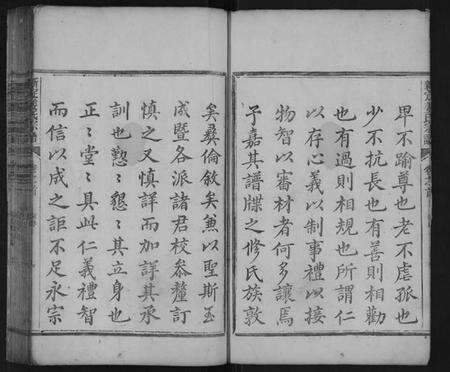 卑不踰尊也老不虐孤也
少不抗長也有善則相勸
也有過則相規也所謂仁
以存心義以制事禮以接
物智以審材者何多讓焉
予嘉其譜牒之修氏族敦
矣彝倫敘矣兼以聖斯玉
成暨各派諸君校叅釐訂
慎之又慎詳而加詳其承
訓也懃〻懇〻其立身也
正〻堂〻具此仁義禮智
而信以成之詎不足永宗